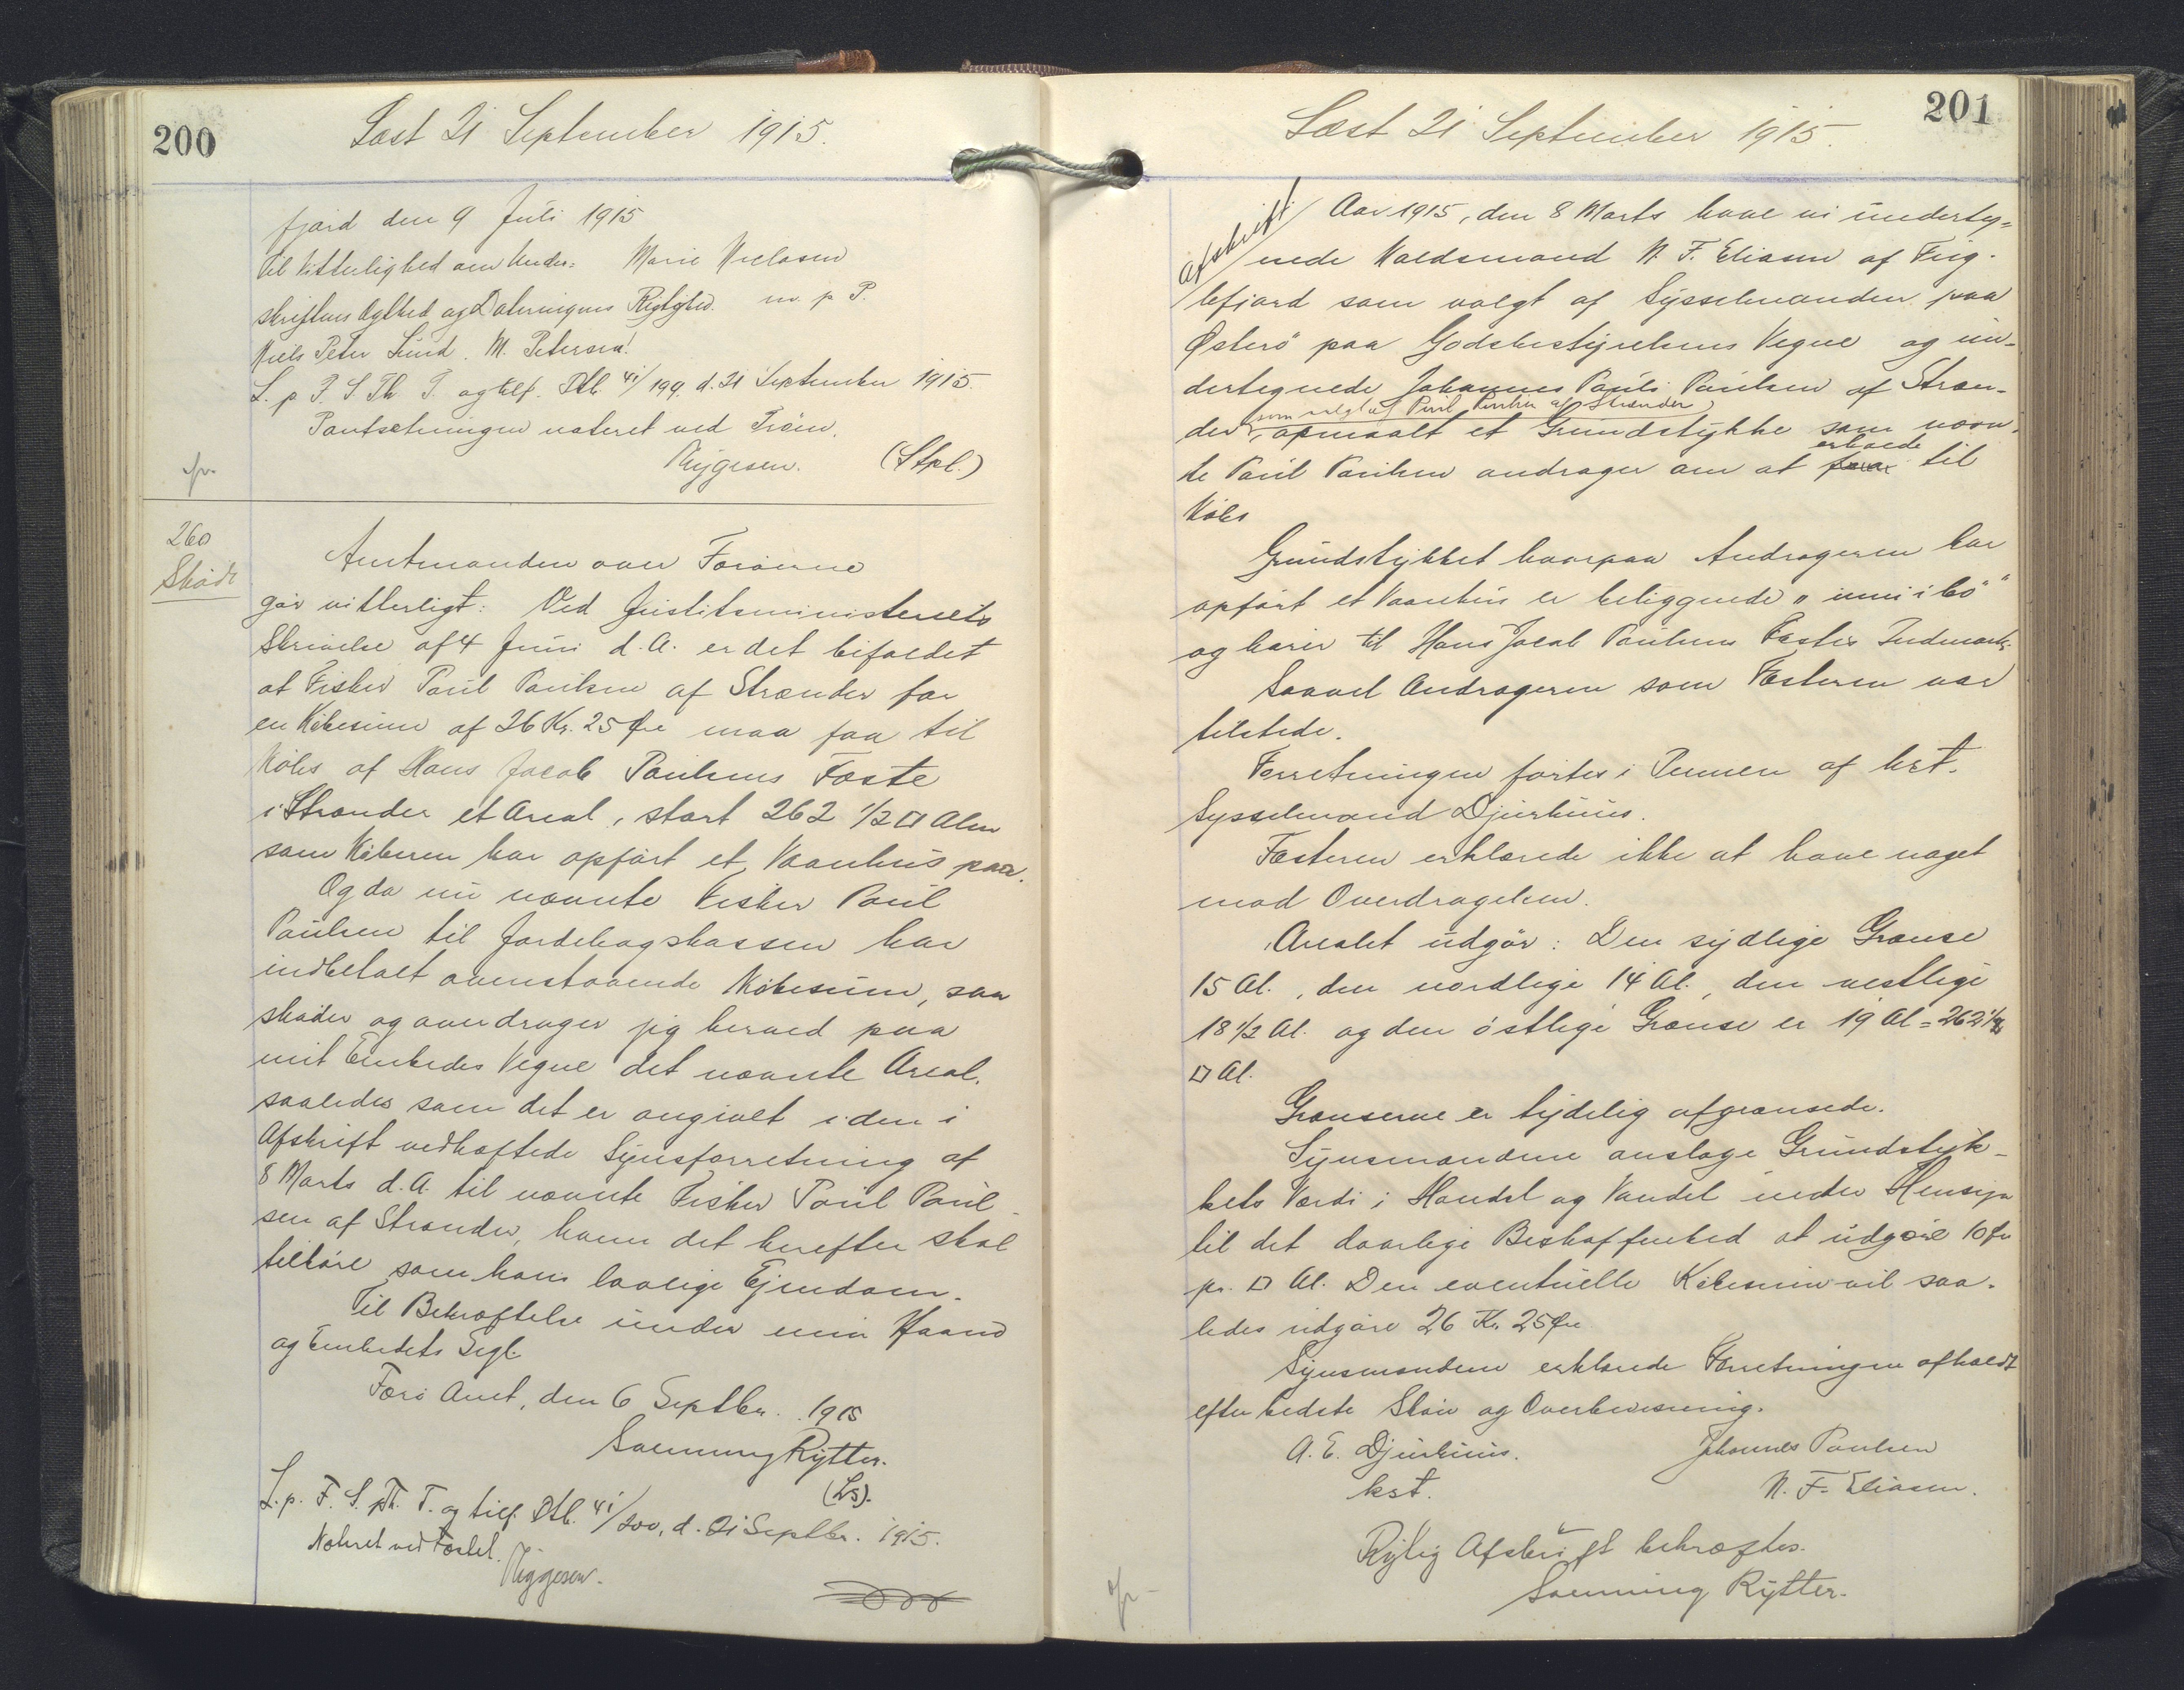 200
Læst 21 September 1915.
fjord den 9 Juli 1915
Til Vitterlighed om Under= Marie Niclasen
skriftens Ægthed og Dateringens Rigtighed. m. p. P.
Niels Peter Lund. M. Petersen.
L. p. F. S. Th. T. og tilf. Dtb. 41/199. d. 21 September 1915.
Pantsætningen noteret ved
(Stpl.)
260
Skøde
Amtmanden over Færøerne
gør vitterligt: Ved Justitsministeriets
Skrivelse af 4 Juni d.A. er det bifaldet
at Fisker Poul Poulsen af Strænder for
en Købesum af 26 Kr. 25 Øre maa faa til
Købs af Hans Jacob Poulsens Fæste
i Strænder et Areal, stort 262 1/2 □ Alen
som Køberen har opført et Vaanhus paa.
Og da nu nævnte Fisker Poul
Poulsen til Jordebogskassen har
indbetalt ovenstaaende Købesum, saa
skøder og overdrager jeg herved paa
mit Embedes Vegne det nævnte Areal,
saaledes som det er angivet i den i
Afskrift vedhæftede Synsforretning af
8 Marts d.A. til nævnte Fisker Poul Poul-
sen af Strænder, hvem det herefter skal
tilhøre som hans lovlige Ejendom.
Til Bekræftelse under min Haand
og Embedets Segl.
Færø Amt, den 6 Septbr. 1915
Svenning Rytter.
(LS).
L. p. F. S. pTh. T. og tilf. Dtb. 41/200, d. 21 Septbr. 1915.
Noteret ved Fæstet.
201
Læst 21 September 1915.
Afskrift
Aar 1915, den 8 Marts have vi underteg=
nede Valdsmand N. F. Eliasen af Fug-
lefjord som valgt af Sysselmanden paa
Østerø paa Godsbestyrelsens Vegne og un-
dertegnede Johannes Pauli Poulsen af Stræn-
som valgt af Poul Poulsen af Strænder
der, opmaalt et Grundstykke som nævn-
erholde
te Poul Poulsen andrager om at faa til
Købs
Grundstykket hvorpaa Andrageren har
opført et Vaanhus er beliggende "inni i bø"
og hører til Hans Jacob Poulsens Fæstes Indmark.
Saavel Andrageren som Fæsteren var
tilstede.
Forretningen førtes i Pennen af kst.
Sysselmand Djurhuus.
Fæsteren erklærede ikke at have noget
mod Overdragelsen.
Arealet udgør: Den sydlige Grænse
15 Al., den nordlige 14 Al., den vestlige
18 1/2 Al. og den østlige Grænse er 19 Al = 262 1/2
□ Al.
Grænserne er tydelig afgrænsede.
Synsmændene anslage Grundstyk-
kets Værdi i Handel og Vandel under Hensyn
til det daarlige Beskaffenhed at udgøre 10 Øre
pr. □ Al. Den eventuelle Købesum vil saa-
ledes udgøre 26 Kr. 25 Øre
Synsmændene erklærede Forretningen afholdt
efter bedste Skøn og Overbevisning.
A. E. Djurhuus. Johannes Poulsen
kst. N. F. Eliasen.
Rigtig Afskrift bekræftes.
Svenning Rytter.